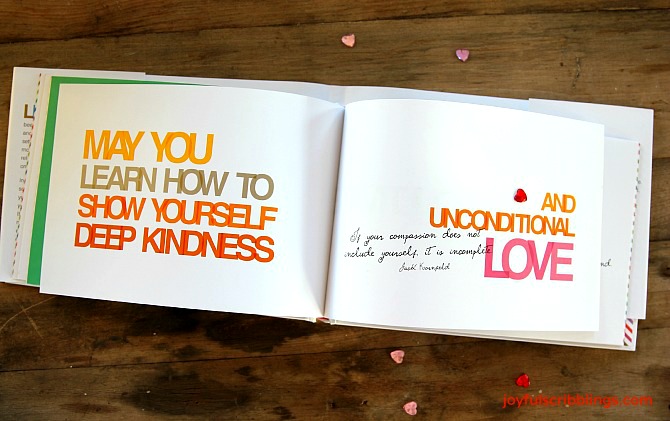 MAY YOU
LEARN HOW TO
SHOW YOURSELF
DEEP KINDNESS
AND
UNCONDITIONAL
LOVE
If your compassion does not
include yourself, it is incomplete
Jack Kornfield
joyfulscribblings.com